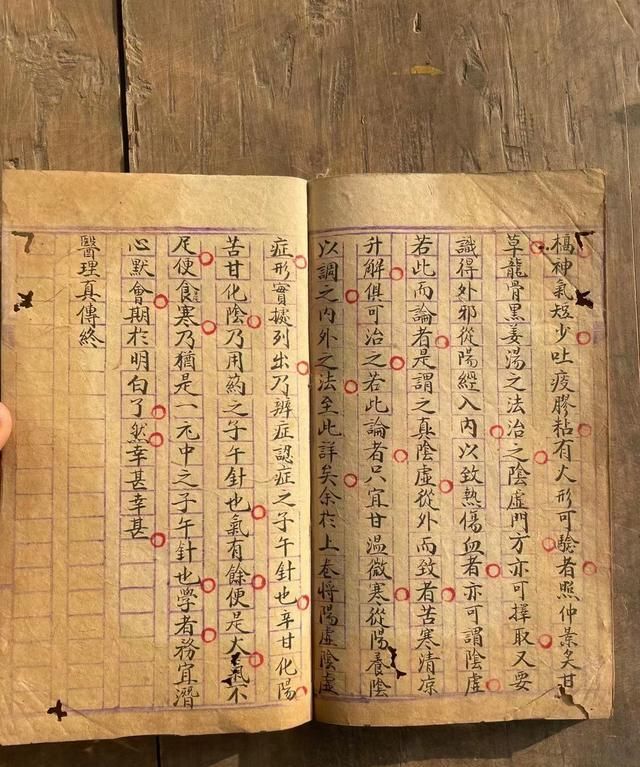 槁神氣短少吐疫膠粘有火形可驗者照仲景炙甘
草龍骨黑姜湯之法治之陰虛門方亦可擇取又要
識得外邪從陽經入內以致熱傷血者亦可謂陰虛
若此而論者是謂之真陰虛從外而致者苦寒清凉
升解俱可治之若此論者只宜甘溫微寒從陽養陰
以調之內外之法至此詳矣余於上卷將陽虛陰虛
症形實據列出乃辨症認症之子午針也辛甘化陽
苦甘化陰乃用葯之子午針也氣有餘便是火氣不
足便食寒乃猶是一元中之子午針也學者務宜潛
心默會期於明白了然幸甚幸甚
醫理真傳終